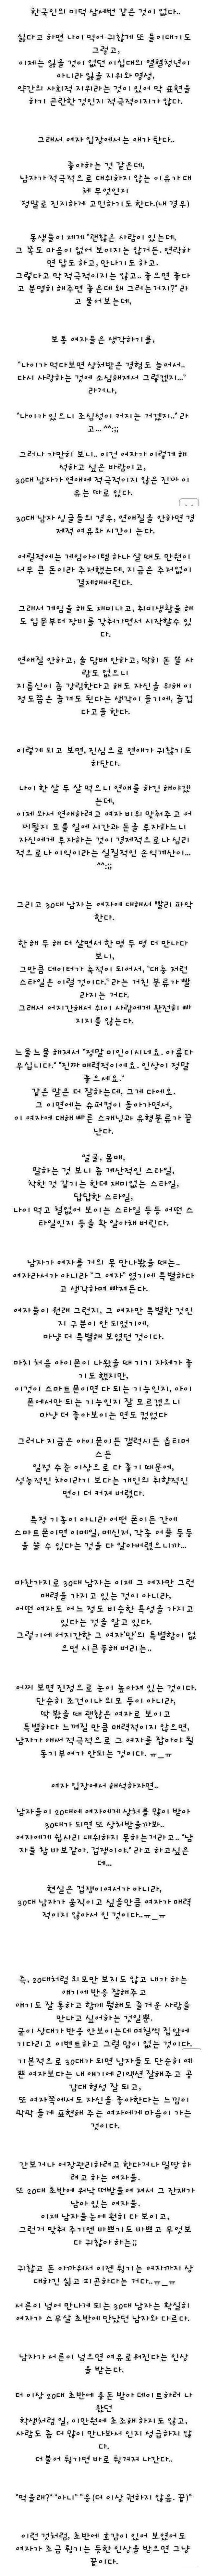 한국인의 미덕 삼세번 같은 것이 없다..
싫다고 하면 나이 먹어 귀찮게 또 들이대기도
그렇고,
이제는 잃을 것이 없던 이십대의 열혈청년이
아니라 잃을 지위와 명성,
약간의 사회적 지위라는 것이 있어 막 표현을
하기 곤란한 것인지 적극적이지가 않다.
그래서 여자 입장에서는 애가 탄다..
좋아하는 것 같은데,
남자가 적극적으로 대쉬하지 않는 이유가 대
체 무엇인지
정말로 진지하게 고민하기도 한다.(내 경우)
동생들이 제게 "괜찮은 사람이 있는데,
그 쪽도 마음이 없어 보이지는 않거든. 연락하
면 답도 하고, 만나기도 하고.
그렇다고 막 적극적이지는 않고.. 좋으면 좋다
고 분명히 해주면 좋은데 왜 그러는거지?" 라
고 물어보는데,
보통 여자들은 생각하기를,
"나이가 먹다보면 상처받은 경험도 늘어서..
다시 사랑하는 것에 소심해져서 그렇겠지..."
라거나,
"나이가 있으니 조심성이 커지는 거겠지.." 라
고... ^^;;
그러나 가만히 보니.. 이건 여자가 이렇게 해
석하고 싶은 바람이고,
30대 남자가 연애에 적극적이지 않은 진짜 이
유는 따로 있다.
30대 남자 싱글들의 경우, 연애질을 안하면 경
제적 여유와 시간이 는다.
어릴적에는 게임아이템 하나 살 때도 만원이
너무 큰 돈이라 주저했는데, 지금은 주저없이
결제해버린다.
그래서 게임을 해도 재미나고, 취미생활을 해
도 입문부터 장비를 갖춰가면서 시작할수 있
다.
연애질 안하고, 술 담배 안하고, 딱히 돈 쓸 사
람도 없으니
지름신이 좀 강림한다고 해도 자신을 위해 이
정도쯤은 즐겨도 된다는 생각이 들기에, 즐겁
다고들 한다.
이렇게 되고 보면, 진심으로 연애가 귀찮기도
하단다.
나이 한 살 두 살 먹으니 연애를 하긴 해야겠
는데,
이제 와서 연애하려고 여자 비위 맞춰주고 어
찌될지 모를 일에 시간과 돈을 투자하느니
자신에게 투자하는 것이 경제적으로나 심리
적으로나 이익이라는 실질적인 손익계산이...
^^;;
그리고 30대 남자는 여자에 대해서 빨리 파악
한다.
한 해 두 해 더 살면서 한 명 두 명 더 만나다
보니,
그만큼 데이터가 축적이 되어서, "대충 저런
스타일은 이럴 것이다." 라는 거친 분류가 빨
라지는 거다.
그래서 어지간해서 쉬이 사람에게 완전히 빠
지지를 않는다.
느물느물 해져서 "정말 미인이시네요. 아름다
우십니다." "진짜 매력적이에요. 인상이 정말
좋으세요."
같은 말은 더 잘하는데, 그게 다에요.
그 이면에는 슈퍼컴이 돌아가면서,
이 여자에 대해 빠른 스캐닝과 유형분류가 끝
난다.
얼굴, 몸매,
말하는 것 보니 좀 계산적인 스타일,
착한 것 같기는 한데 재미없는 스타일,
답답한 스타일,
나이 먹고 철없어 보이는 스타일 등등 어떤 스
타일인지 등을 확 알아채 버린다.
남자가 여자를 거의 못 만나봤을 때는..
여자라서가 아니라 "그 여자" 였기에 특별하다
고 생각하며 빠져든다.
여자들이 원래 그런지, 그 여자만 특별한 것인
지 구분이 안 되었기에,
마냥 더 특별해 보였던 것이다.
마치 처음 아이폰이 나왔을 때 기기 자체가 좋
기도 했지만,
이것이 스마트폰이면 다 되는 기능인지, 아이
폰에서만 되는 기능인지 잘 모르겠으니
마냥 더 좋아보이는 면도 컸었다
그러나 지금은 아이폰이든 갤럭시든 옵티머
스든
일정 수준 이상으로 다 좋기 때문에,
성능적인 차이라기 보다는 개인의 취향적인
면이 더 커져 버렸다.
특정 기종이 아니라 어떤 폰이든 간에
스마트폰이면 이메일,메신저, 각종 어플 등등
을 쓸 수 있다는 것을 다 알아버렸으니까...
마찬가지로 30대 남자는 이제 그 여자만 그런
매력을 가지고 있는 것이 아니라,
어떤 여자도 어느 정도 비슷한 특성을 가지고
있다는 것을 알고 있다.
그렇기에 어지간한 그 여자'만'의 특별함이 없
으면 시큰둥해 버리는..
어찌 보면 진정으로 눈이 높아져 있는 것이다.
단순히 조건이나 외모 등이 아니라,
딱 봤을 때 괜찮은 여자로 보이고
특별하다 느껴질 만큼 매력적이지 않으면,
남자가 애써 적극적으로 그 여자를 잡아야 될
동기부여가 안되는 것이다. ㅠ_ㅠ
여자 입장에서 해석하자면..
남자들이 20대에 여자에게 상처를 많이 받아
30대가 되면 또 상처받을까봐..
여자에게 쉽사리 대쉬하지 못하는거라고.. "남
자들 참 바보같아. 겁쟁이야." 라고 하고싶은
데...
현실은 겁쟁이여서가 아니라,
30대 남자가 움직이고 싶을만큼 여자가 매력
적이지 않아서 인 것이다..ㅠ_ㅠ
즉, 20대처럼 외모만 보지도 않고 내가 하는
얘기에 반응 잘해주고
얘기도 잘 통하고 함께 뭘해도 즐거운 사람을
만나고 싶어하는 것일뿐.
굳이 상대가 반응 안보이는데 며칠씩 집앞에
기다리고 이벤트하고 그럴 맘이 없는 것이다.
기본적으로 30대가 되면 남자들도 단순히 예
쁜 여자보다는 내 얘기에 리액션 잘해주고 공
감대 형성 잘 되고,
또 여자쪽에서도 자신을 좋아한다는 느낌이
팍팍 들게 표현해 주는 여자에게 마음이 가는
것이다.
간보거나 어장관리하려고 한다거나 밀땅 하
려고 하는 여자들.
또 20대 초반에 워낙 떠받들여 져서 그 잔재가
남아 있는 여자들.
이제 남자들 눈에 훤히 다 보이고,
그런거 맞춰 주기엔 바쁘기도 바쁘고 무엇보
다 귀찮아 하는;;
귀찮고 돈 아까워서 이젠 튕기는 여자까지 상
대하긴 싫고 피곤하다는 거다..ㅠ_ㅠ
서른이 넘어 만나게 되는 30대 남자는 확실히
여자가 스무살 초반에 만났던 남자와 다르다.
남자가 서른이 넘으면 여유로워진다는 인상
을 받는다.
더 이상 20대 초반에 용돈 받아 데이트하러 나
왔던
학생처럼 일, 이만원에 초조해 하지도 않고,
사람도 좀 더 많이 만나봐서 인지 성급하지 않
다.
더불어 튕기면 바로 튕겨져 나간다..
"먹을래?" "아니" "응(더 이상 권하지 않음. 끝)"
이런 것처럼, 초반에 호감이 있어 보였어도
여자가 조금 튕기는 듯한 인상을 받으면 그냥
끝이다.